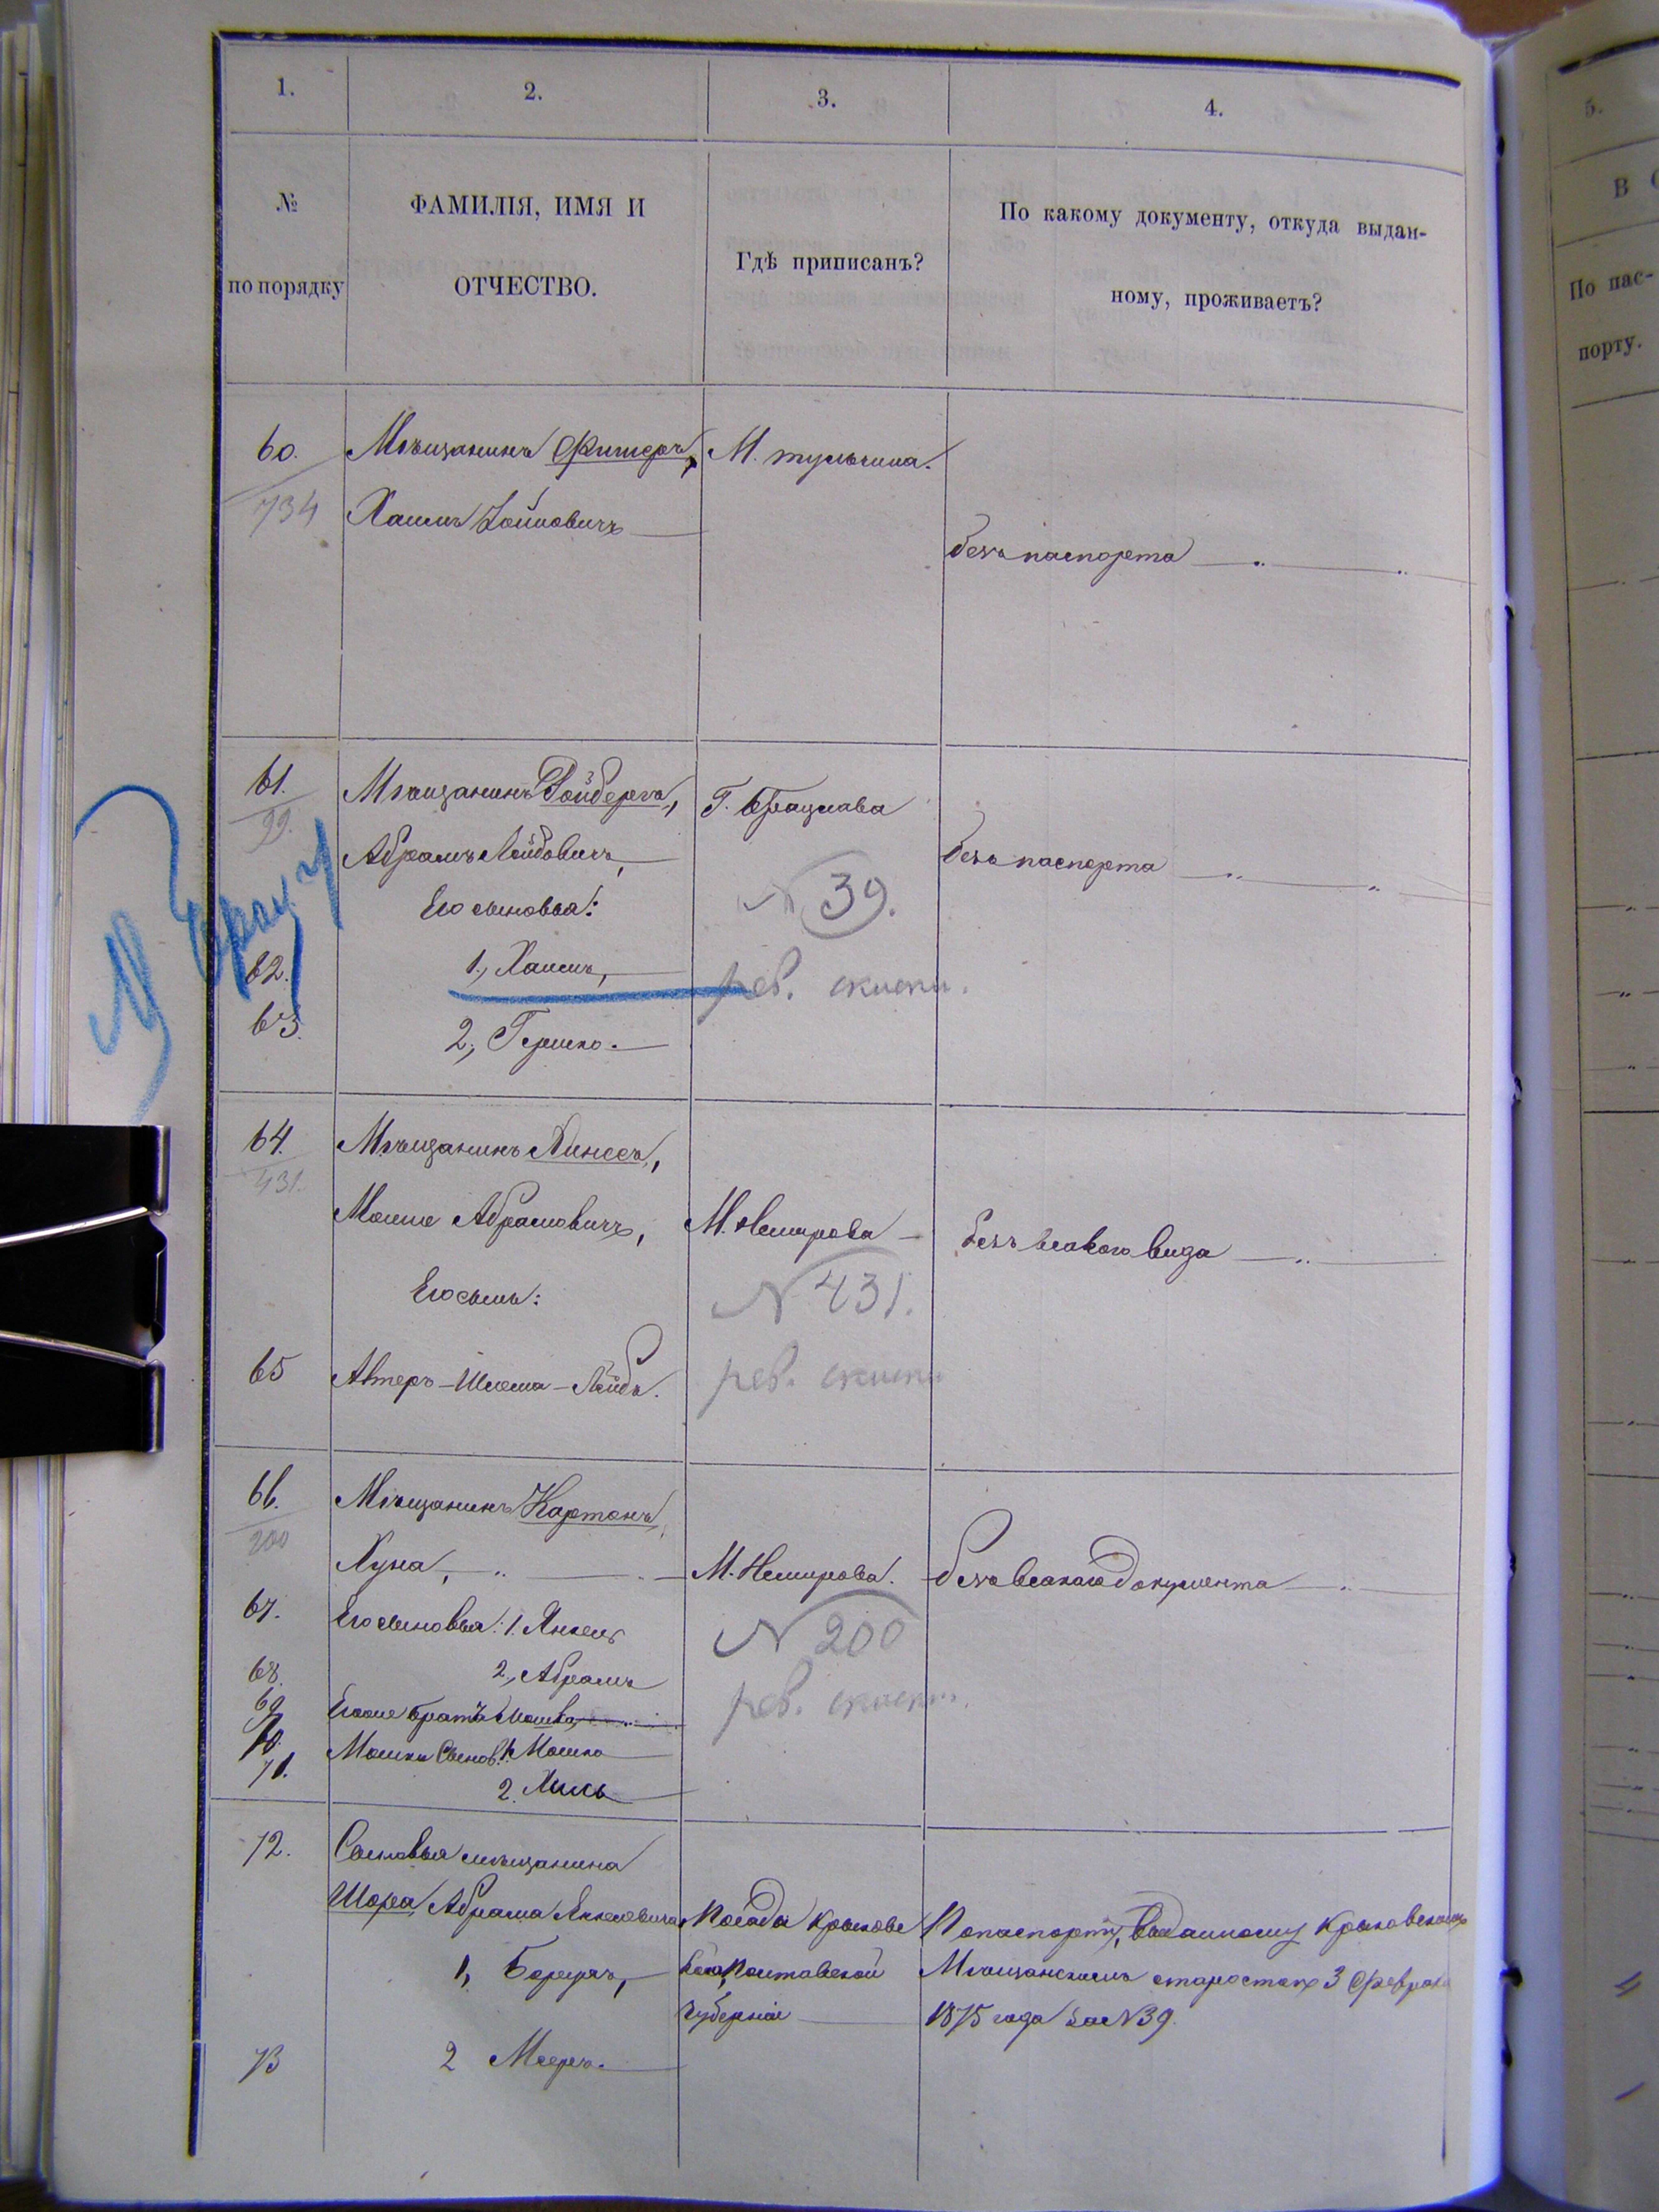 1.
2.
3.
4.
№
по порядку
ФАМИЛІЯ, ИМЯ И
ОТЧЕСТВО.
Гдѣ приписанъ?
По какому документу, откуда выдан-
ному, проживаетъ?
60.
734
Мѣщанинъ Фишеръ,
Хаимъ
М. Тульчина.
безъ паспорта
61.
99.
Мѣщанинъ
Абрамъ Лейбовичъ,
Его сыновья:
62.
1., Хаимъ,
63.
2., Гершко.
Г. Брацлава
N 39.
рев. скаски.
безъ паспорта
64.
431.
Мѣщанинъ
Мошко Абрамовичъ,
Его сынъ:
65
Альтеръ-Шлема-Лейбъ.
М. Немирова
N 431.
рев. скаски
безъ всякого вида
66.
200
Мѣщанинъ Картонъ,
Хуна,
67.
Его сыновья: 1. Янкель
68.
2., Абрамъ
69
Его же братъ Мошко
70.
Мошки Сынов. 1. Мошко
71.
2.
М. Немирова.
N 200
рев. скаски.
безъ всякого документа
72.
Сыновья мѣщанина
Шора, Абрама Янкелевича
1, Борухъ,
73
2 Мееръ.
Посада Крюкова
Полтавской
губерніи
По паспорту, выданному Крюковскимъ
Мѣщанскимъ старостою 3 Февраля
1875 года за N 39.
5.
В
По пас-
порту.